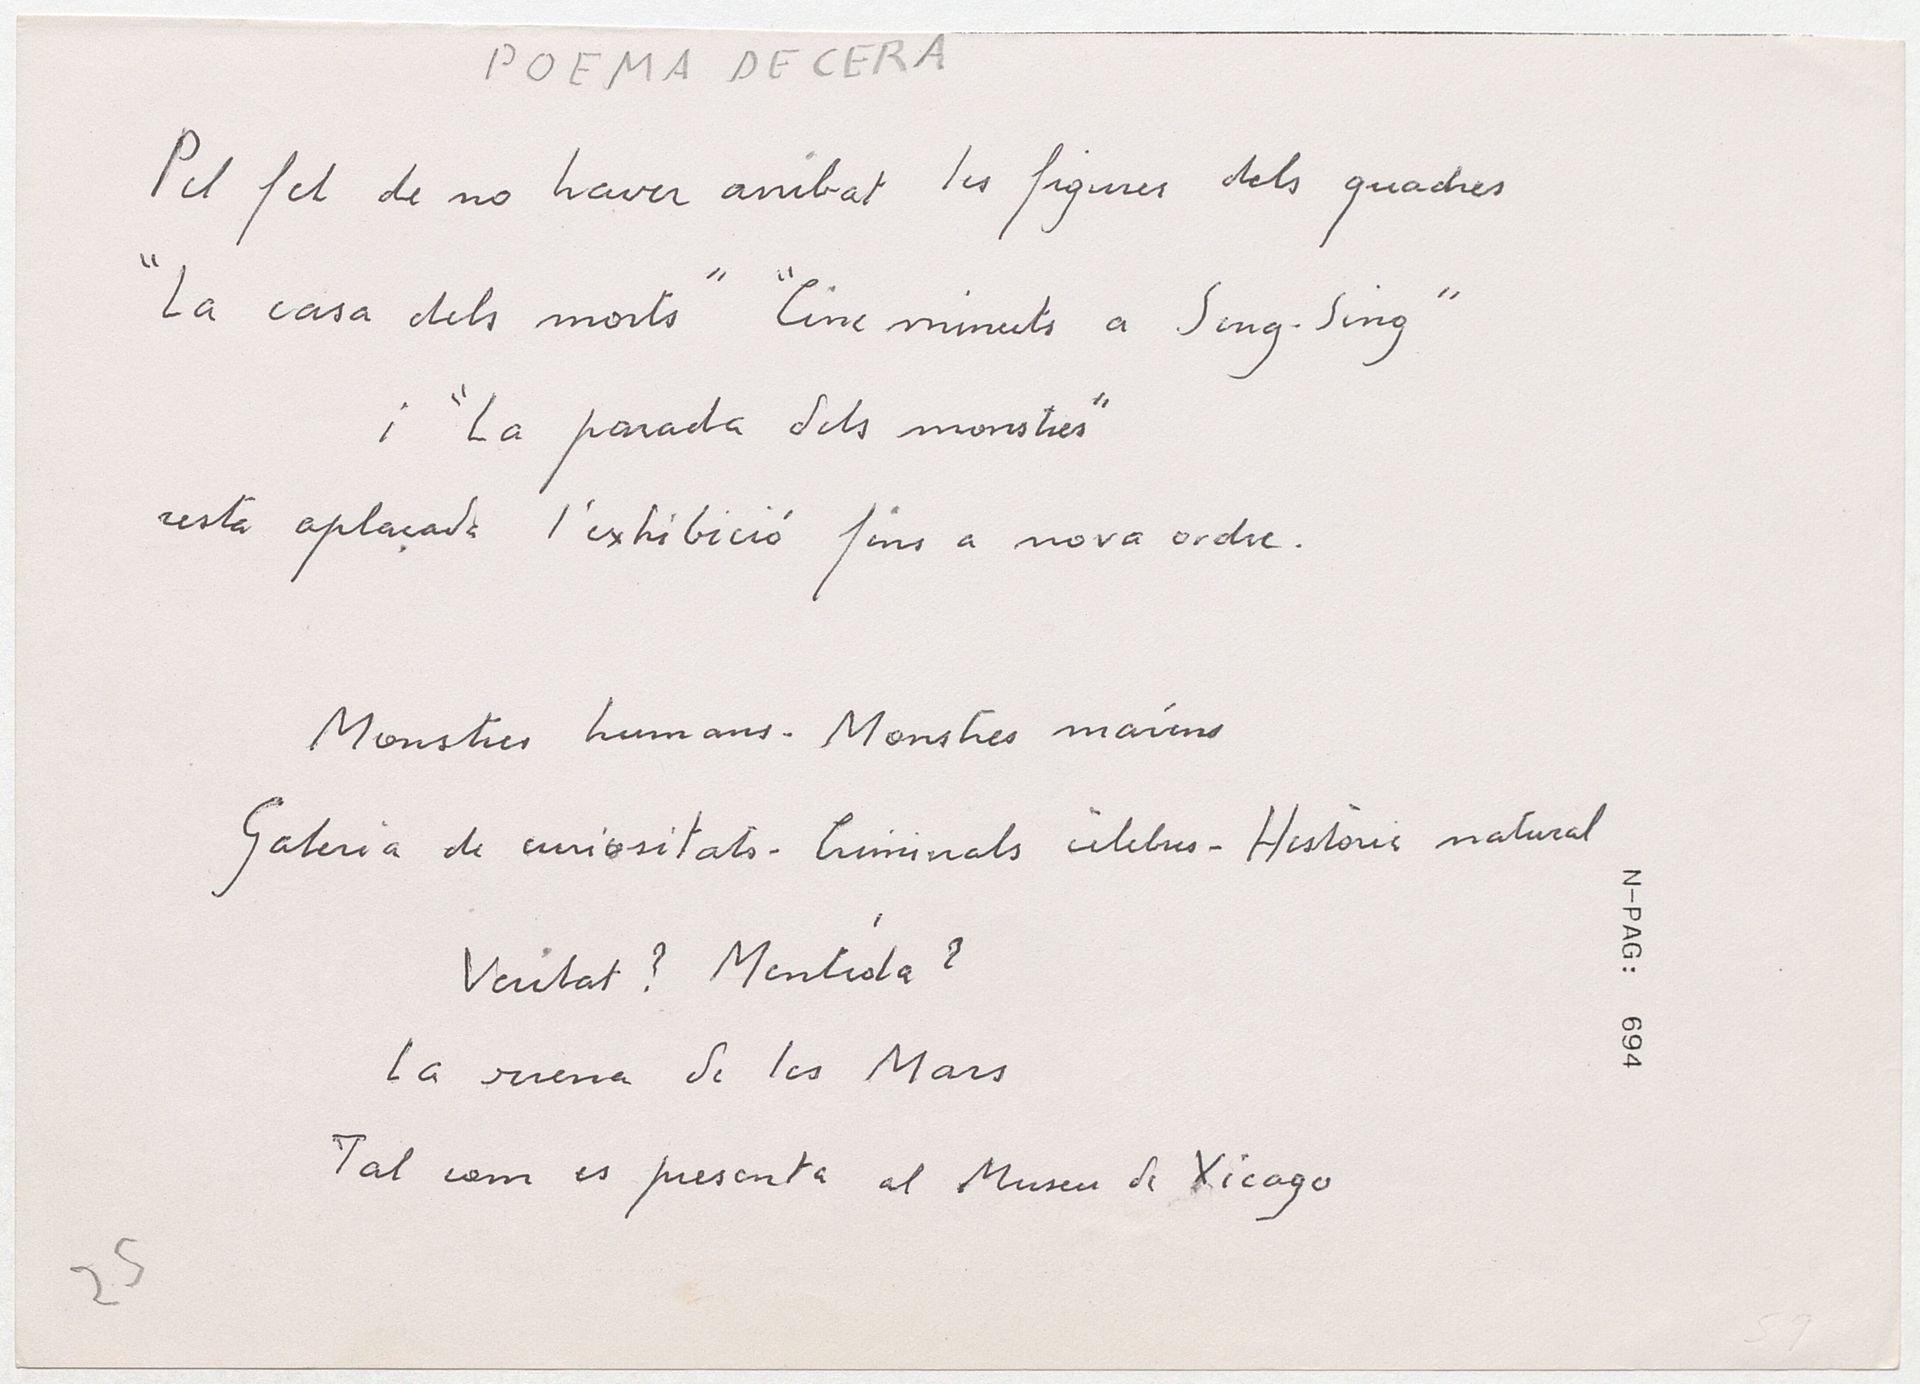 POEMA DE CERA
Pel fet de no haver arribat les figures dels quadres
"La casa dels morts" "Cinc minuts a Sing-Sing"
i "La parada dels monstres"
resta aplaçada l'exhibició fins a nova ordre.
Monstres humans - Monstres marins
Galeria de curiositats - Criminals cèlebres - Història natural
Veritat? Mentida?
La sirena de les Mars
Tal com es presenta al Museu de Xicago
25
N-PAG: 694
59